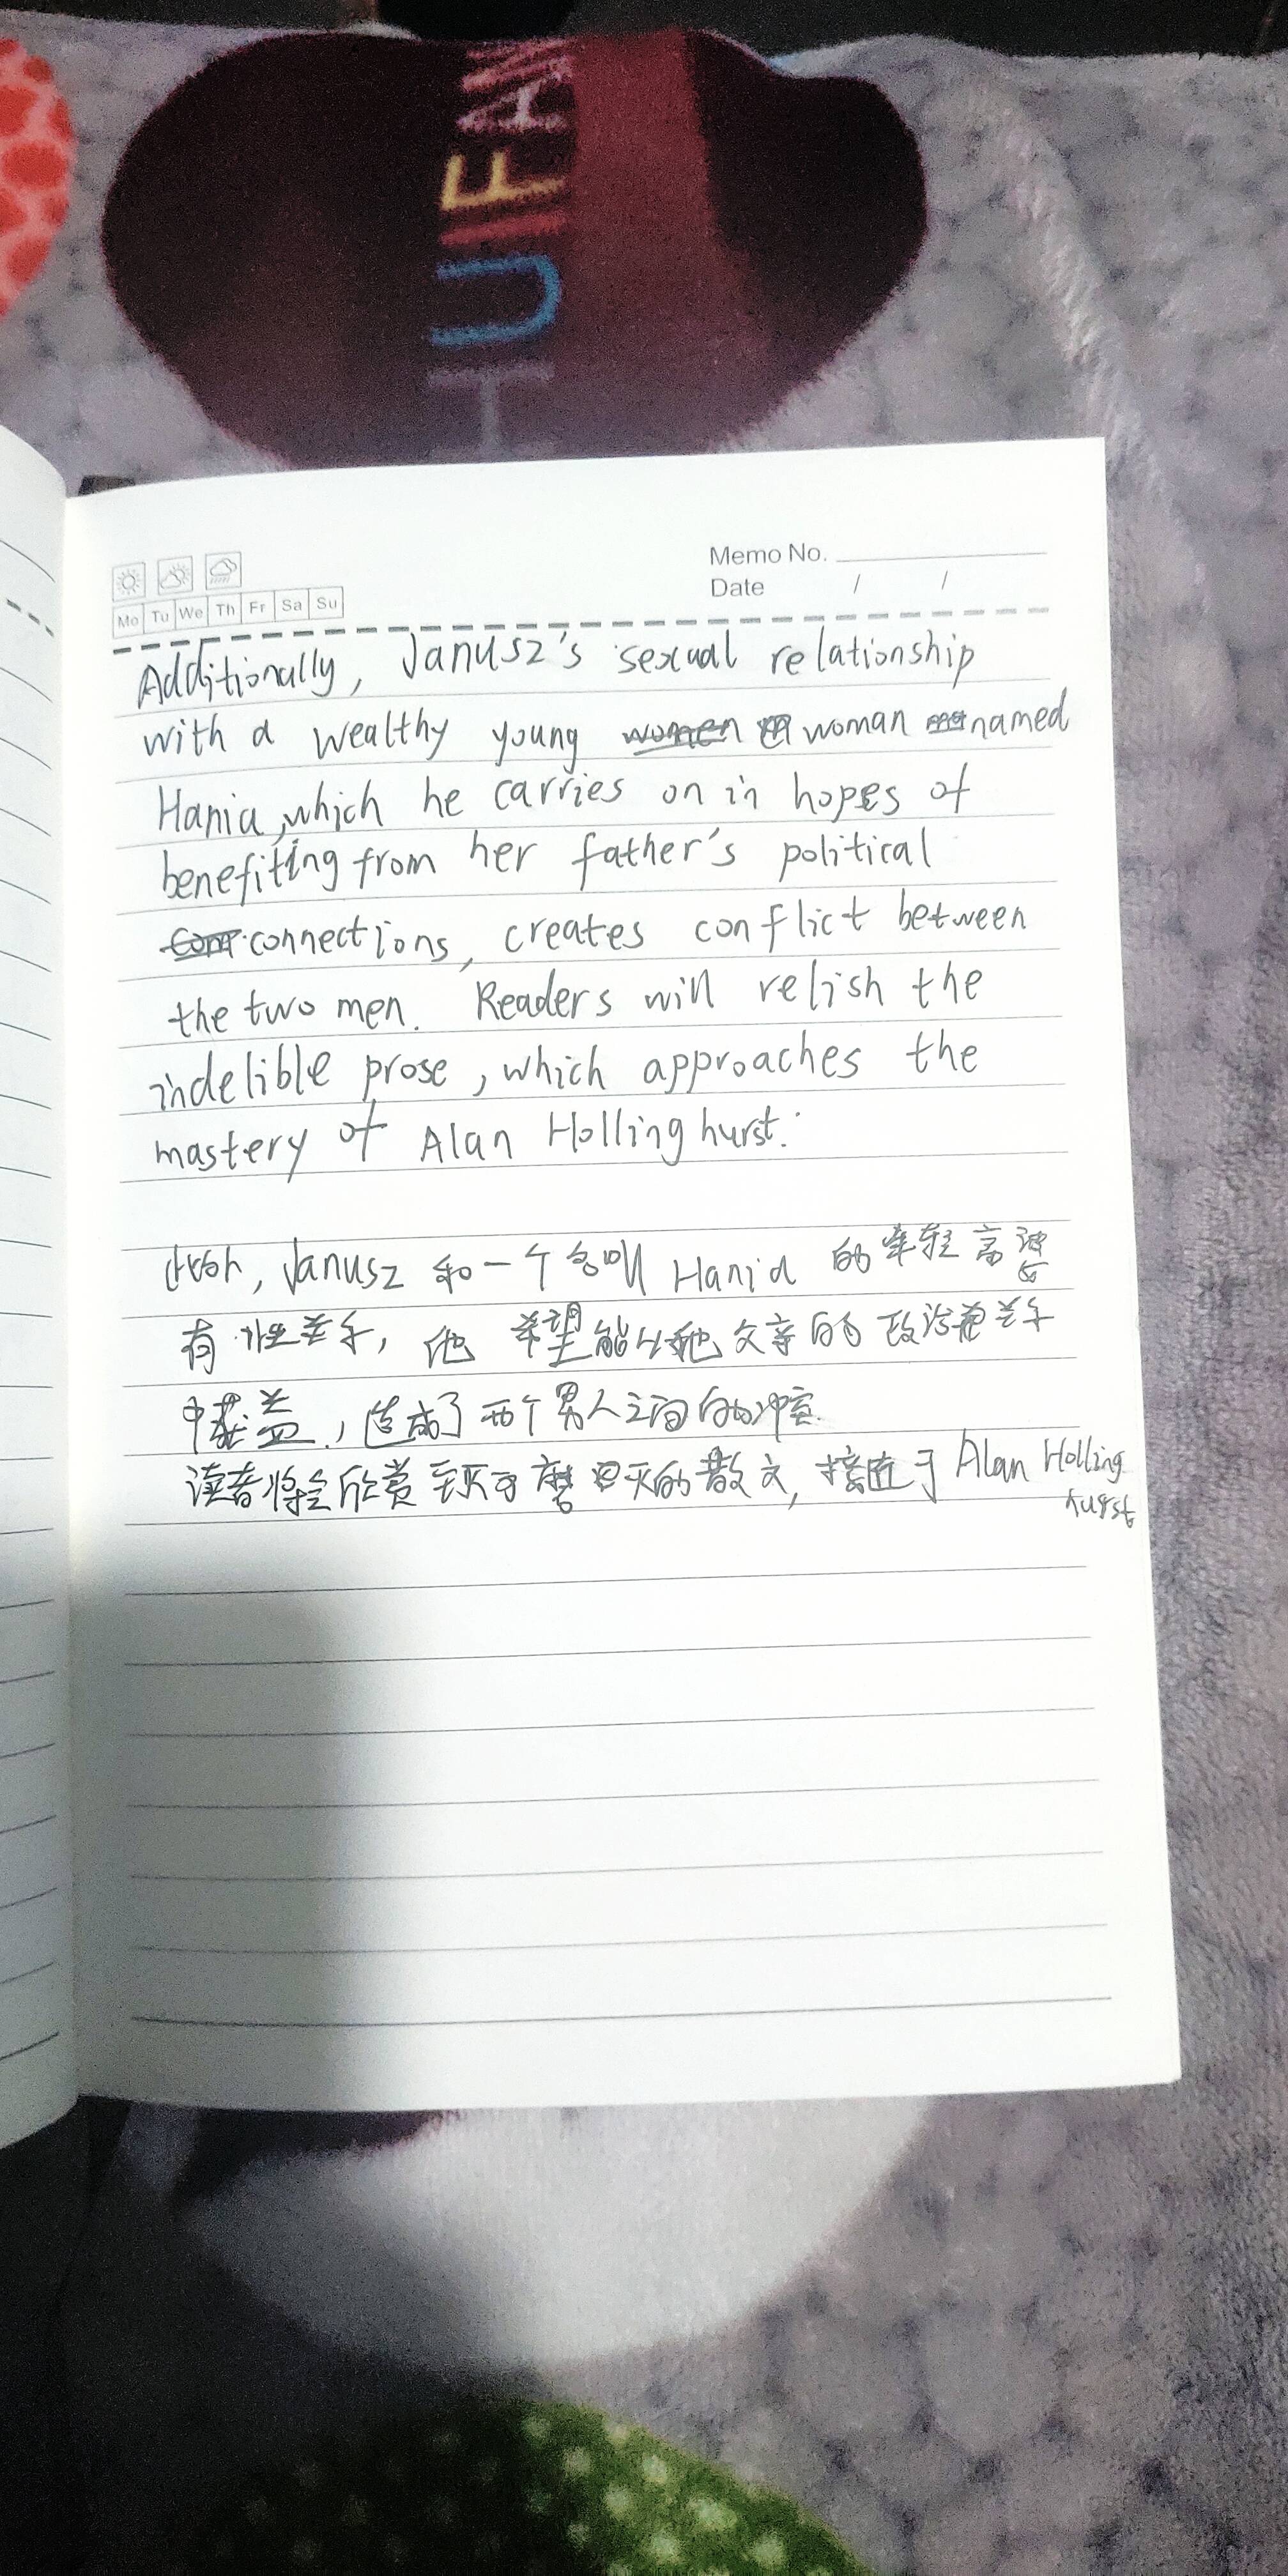 UIFAW
Memo No.
Date / /
Mo Tu We Th Fr Sa Su
Additionally, Janusz's sexual relationship
with a wealthy young woman named
Hania, which he carries on in hopes of
benefiting from her father's political
connections, creates conflict between
the two men. Readers will relish the
indelible prose, which approaches the
mastery of Alan Hollinghurst.
此外, Janusz 和一个名叫 Hania 的年轻富婆
有性关系, 他希望能从她父亲的政治关系
中获益, 造成了两个男人之间的冲突.
读者将会欣赏到不可磨灭的散文, 接近于 Alan Holling
hurst